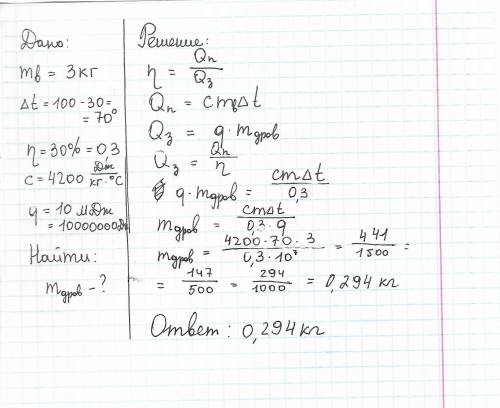 Дано:
mв = 3кг
Δt = 100 - 30 =
= 70°
η = 30% = 0,3
c = 4200 Дж/кг·°C
q = 10 мДж
= 10000000Дж
Найти:
mдров - ?
Решение:
η = Qп/Qз
Qп = cmвΔt
Qз = q·mдров
Qз = Qп/η
q·mдров = cmΔt/0,3
mдров = cmΔt/0,3·q
mдров = 4200·70·3/0,3·10⁷ = 441/1500 =
= 147/500 = 294/1000 = 0,294 кг
Ответ: 0,294кг